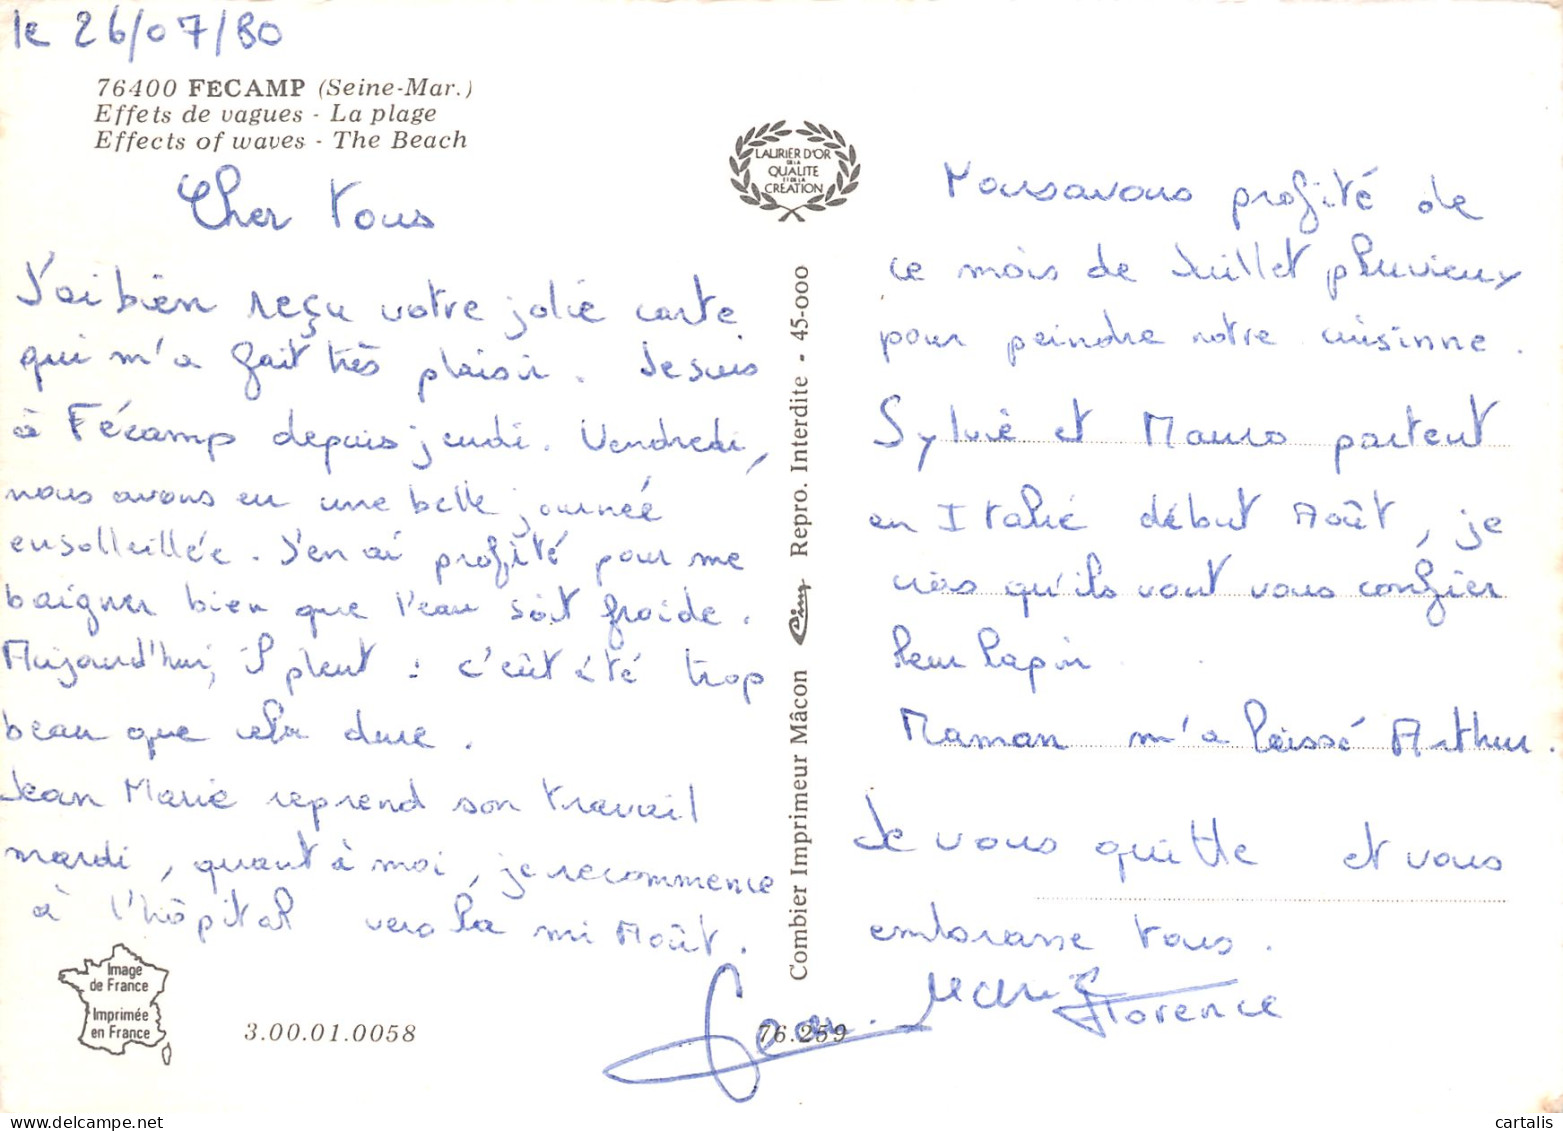 le 26/07/80
76400 FÉCAMP (Seine-Mar.)
Effets de vagues - La plage
Effects of waves - The Beach
Cher Tous
J'ai bien reçu votre jolie carte
qui m'a fait très plaisir. Je suis
à Fécamp depuis jeudi. Vendredi,
nous avons eu une belle journée
ensolleillée. J'en ai profité pour me
baigner bien que l'eau soit froide.
Aujourd'hui, il pleut : c'eût été trop
beau que cela dure.
Jean Marie reprend son travail
mardi, quant à moi, je recommence
à l'hôpital vers la mi Août.
Image
de France
Imprimée
en France
3.00.01.0058
LAURIER D'OR
DE LA
QUALITE
ET DE LA
CREATION
Combier Imprimeur Mâcon Cim Repro. Interdite - 45-000
76.259
Nous avons profité de
ce mois de Juillet pluvieux
pour peindre notre cuisinne.
Sylvie et Mauro partent
en Italie début Août, je
crois qu'ils vont vous confier
leur lapin
Maman m'a laissé Arthur.
Je vous quitte et vous
embrasse tous.
Jean. Marie
Florence
cartalis